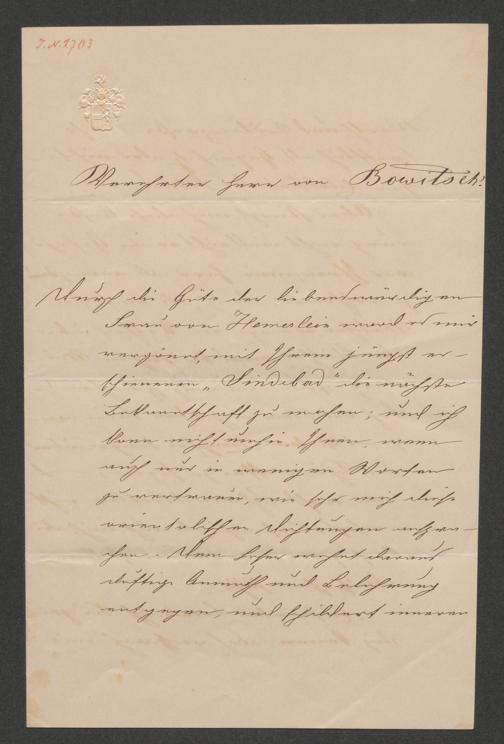 I.N. 2703
Verehrter Herr von Bowitsch!
Durch die Güte der liebenswürdigen
Frau von Hemerlein ward es mir
vergönnt, mit Ihrem jüngst er-
schienenen „Sindibad" die nächste
Bekanntschaft zu machen; und ich
kann nicht umhin, Ihnen, wenn
auch nur in wenigen Worten
zu vertrauen, wie sehr mich diese
orientalischen Dichtungen anspra-
chen. Dem Leser wehet daraus
duftige Anmuth und Belehrung
entgegen, und schildert inneren